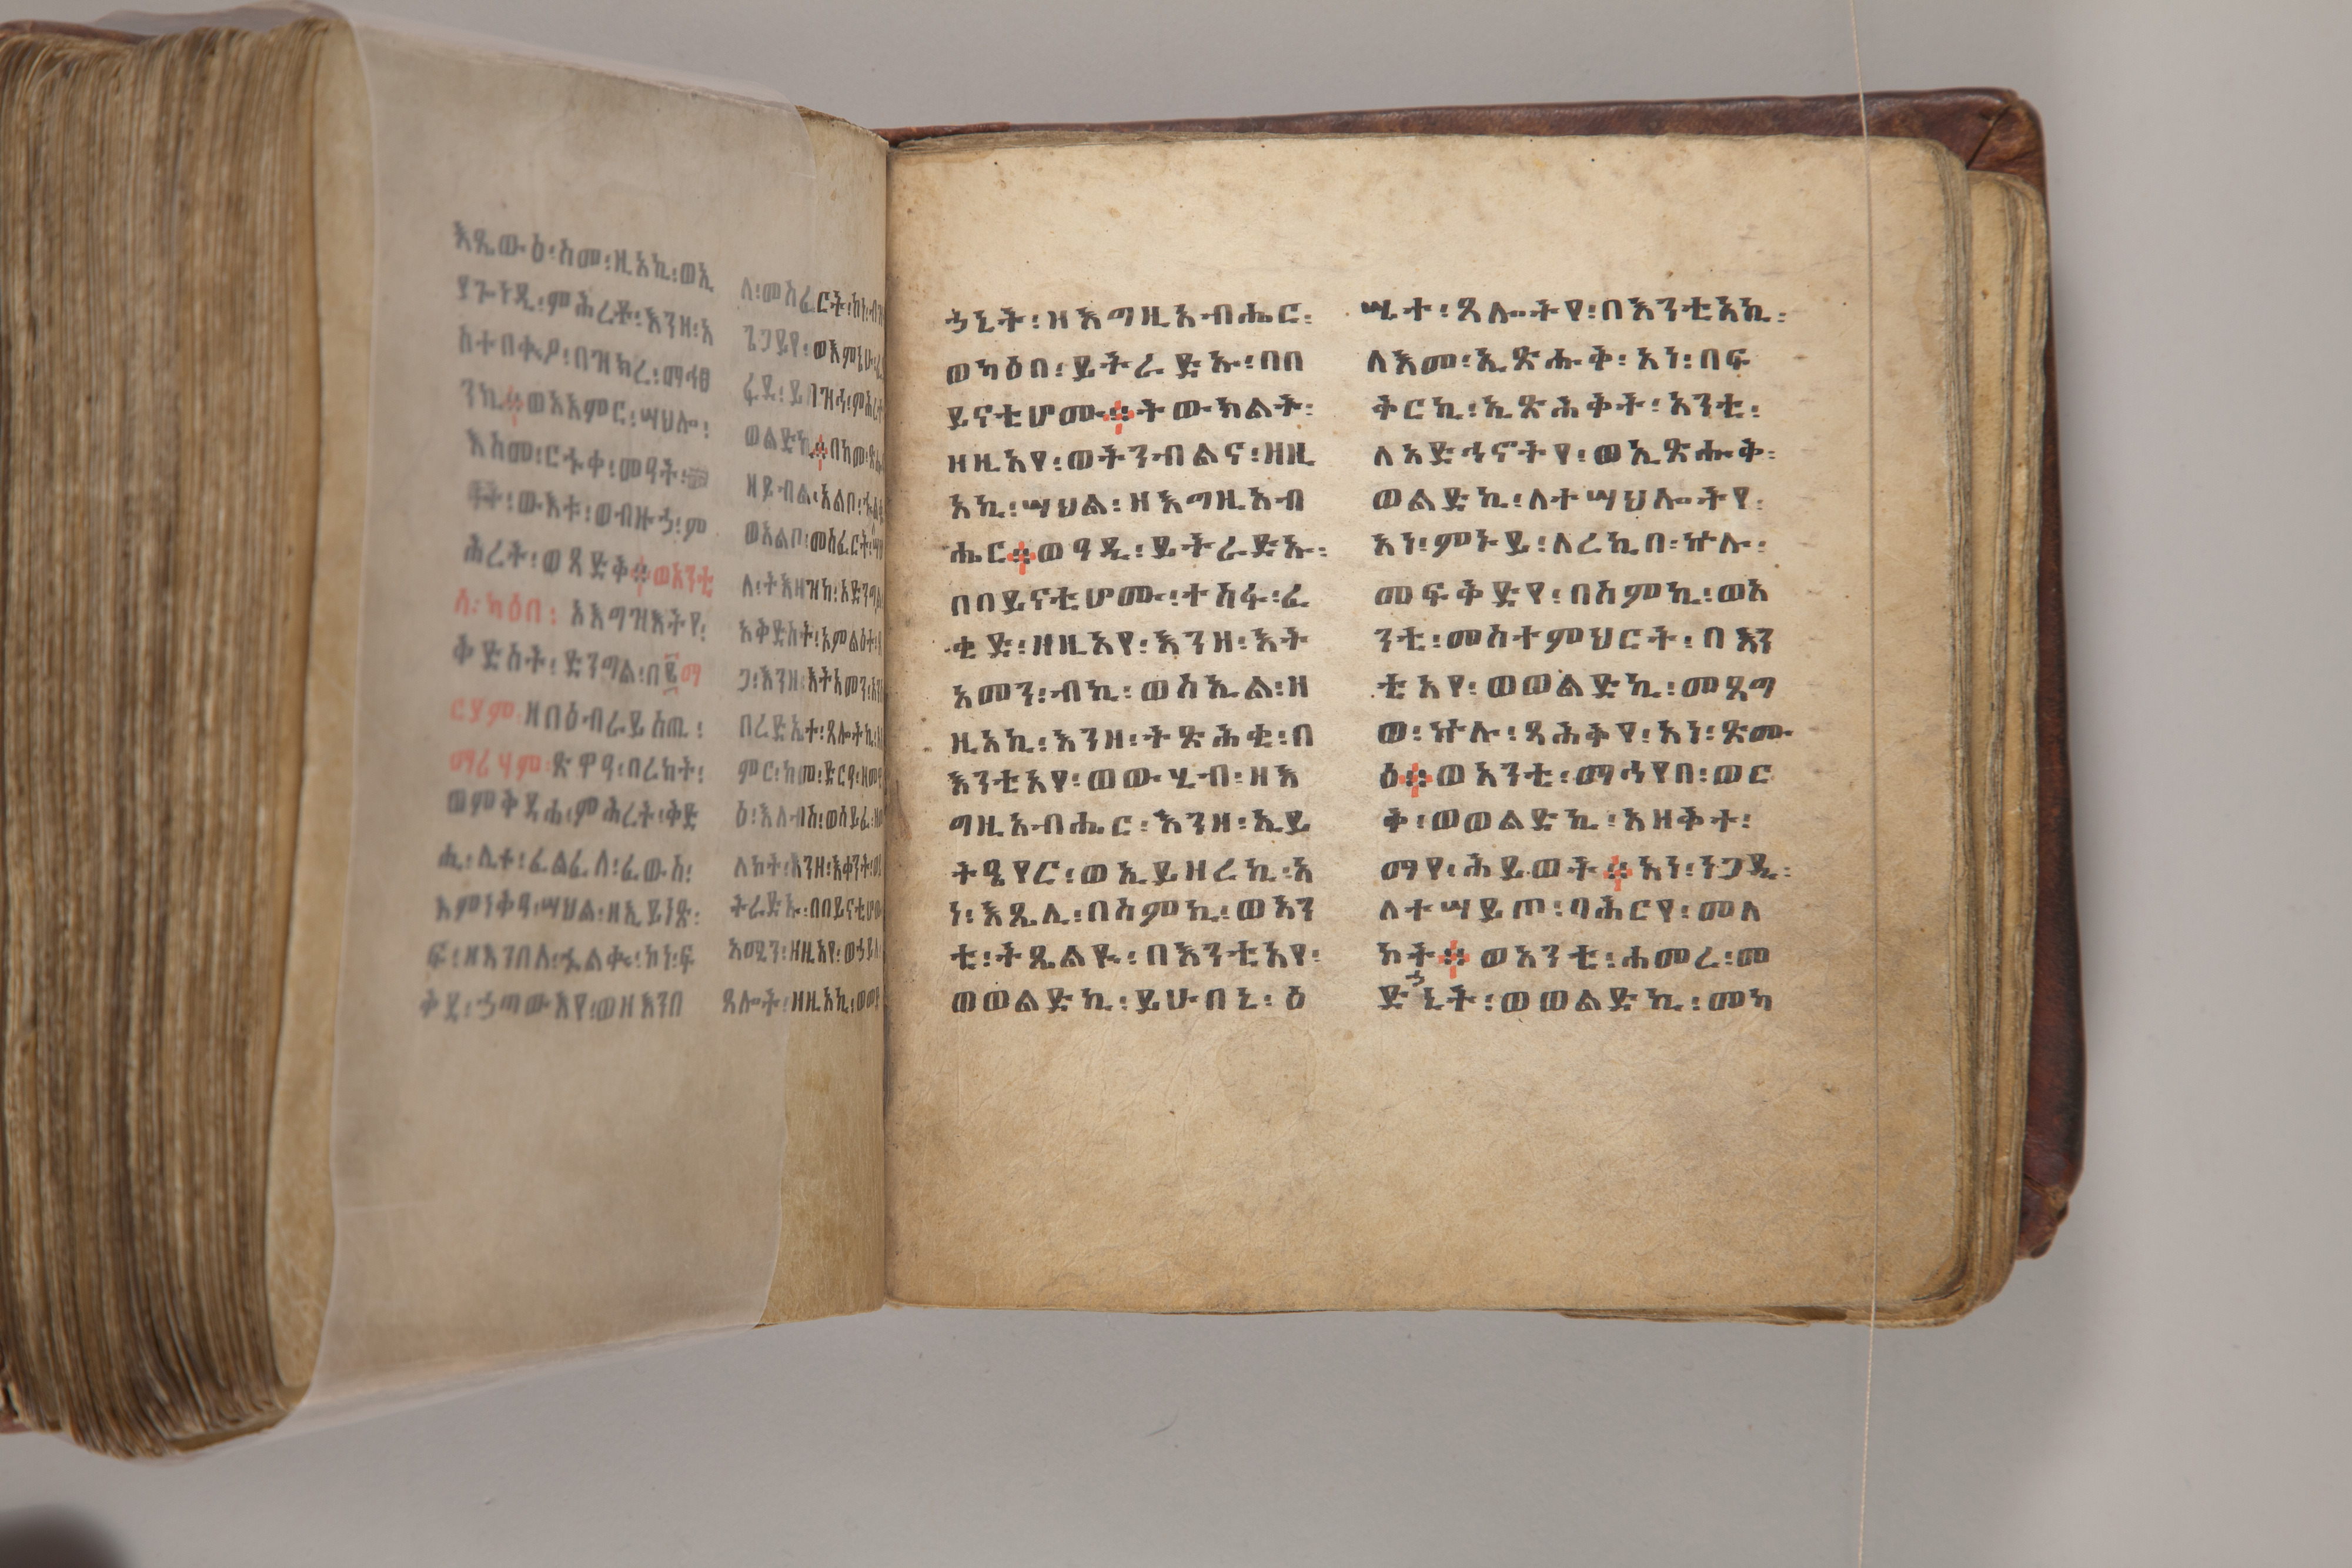 እጼውዕ፡ስመ፡ዚአኪ፡ወኢ
ያጐነዲ፡ምሕረቶ፡እንዘ፡አ
ስተበቍዖ፡በዝክረ፡ማኅፀ
ንኪ።ወአአምር፡ሣህሎ፡
እስመ፡ርኁቀ፡መዓት፡
ውእቱ፡ወብዙኃ፡ም
ሕረት፡ወጻድቅ።ወአንቲ
ለ፡ካዕበ፡ አእግዝእትየ፡
ቅድስት፡ድንግል፡በ፪ማ
ርያም፡ዘበዕብራይስጢ፡
ማሪሃም፡ጽዋዓ፡በረከት፡
ወምቅዳሐ፡ምሕረት፡ቅድ
ሐ፡ሊተ፡ፈልፈለ፡ፈውስ፡
እምነቅዓ፡ሣህል፡ዘኢይነጽ፡
ፍ፡ዘእንበለ፡ኁልቍ፡ከነ፡ፍ
ቅደ፡ኃጣውእየ፡ወዘእንበ
ለ፡መስፈርት፡ከነ፡
ጌጋይየ፡ወእምነሁ፡
ወልድኪ።በከመ፡
ዘይብል፡አልቦ፡
ወአልቦ፡መስፈርት፡
ለ፡ተአዘዝኪ፡አድንግል
አቅድስት፡አምልዕተ፡
ጋ፡እንዘ፡እትአመን፡
በረድኤተ፡ጸሎትኪ፡
ምር፡ከመ፡
ለከት፡እንዘ፡
ትራድኡ፡በበይናቲሆሙ
አሚን፡ዘዚአየ፡
ጸሎት፡ዘዚአኪ፡
ኃኒት፡ዘእግዚአብሔር፡
ወካዕበ፡ይትራድኡ፡በበ
ይናቲሆሙ።ትውክልት፡
ዘዚአየ፡ወትንብልና፡ዘዚ
አኪ፡ሣህል፡ዘእግዚአብ
ሔር።ወዓዲ፡ይትራድኡ፡
በበይናቲሆሙ፡ተአፋ፡ፈ
ቂድ፡ዘዚአየ፡እንዘ፡እት
አመን፡ብኪ፡ወስኢል፡ዘ
ዚአኪ፡እንዘ፡ትጽሕቂ፡በ
እንቲአየ፡ወውሂብ፡ዘእ
ግዚአብሔር፡እንዘ፡ኢይ
ትዔየር፡ወኢይዘረኪ፡አ
ነ፡እጼሊ፡በስምኪ፡ወአን
ቲ፡ትጼልዪ፡በእንቲአየ፡
ወወልድኪ፡ይሁበኒ፡ዕ
ሤተ፡ጸሎትየ፡በእንቲአኪ፡
ለእመ፡ኢጽሑቅ፡አነ፡በፍ
ቅርኪ፡ኢጽሕቅት፡አንቲ፡
ለአድኅኖትየ፡ወኢጽሑቅ፡
ወልድኪ፡ለተሣህሎትየ፡
አነ፡ምኑይ፡ለረኪበ፡ኵሉ፡
መፍቅድየ፡በስምኪ፡ወአ
ንቲ፡መስተምህርት፡በእን
ቲአየ፡ወወልድኪ፡መጸግ
ው፡ኵሉ፡ጻሕቅየ፡አነ፡ጽሙ
ዕ።ወአንቲ፡ማኅየበ፡ወር
ቅ፡ወወልድኪ፡አዘቅተ፡
ማየ፡ሕይወት።አነ፡ነጋዲ፡
ለተሣይጦ፡ባሕርየ፡መለ
ኮት።ወአንቲ፡ሐመረ፡መ
ድኃኒት፡ወወልድኪ፡መካ